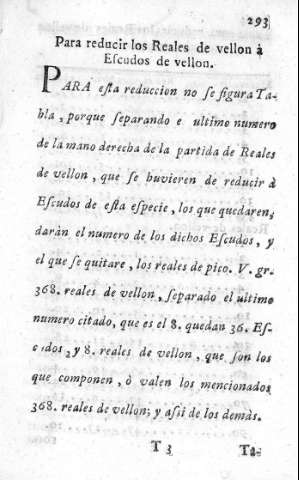 293
Para reducir los Reales de vellon à
Eſcudos de vellon.
PARA eſta reduccion no ſe figura Ta-
bla, porque ſeparando e ultimo numero
de la mano derecha de la partida de Reales
de vellon, que ſe huvieren de reducir à
Eſcudos de eſta eſpecie, los que quedaren,
daràn el numero de los dichos Eſcudos, y
el que ſe quitare, los reales de pico. V. gr.
368. reales de vellon, ſeparado el ultimo
numero citado, que es el 8. quedan 36. Eſ-
c idos, y 8. reales de vellon, que ſon los
que componen, ò valen los mencionados
368. reales de vellon; y aſsi de los demàs.
T 3 Ta-